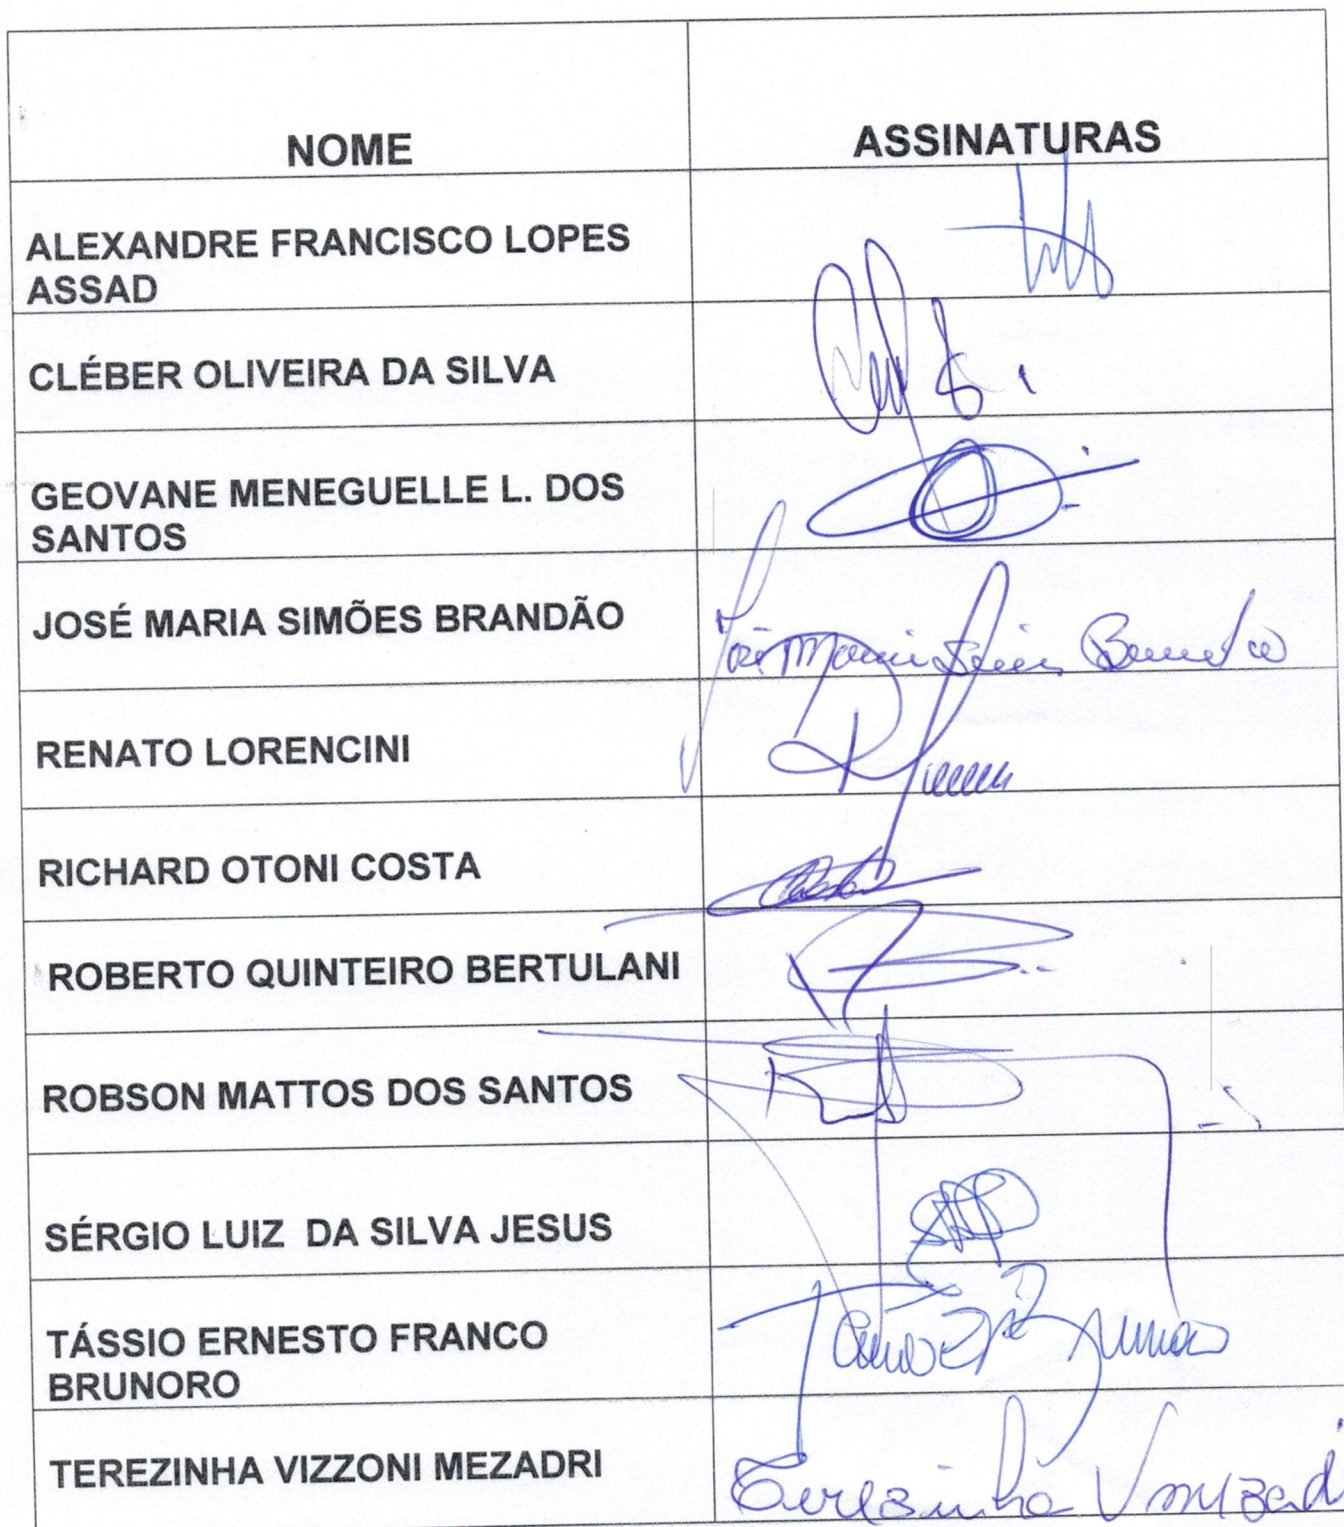 NOME
ASSINATURAS
ALEXANDRE FRANCISCO LOPES
ASSAD
CLÉBER OLIVEIRA DA SILVA
GEOVANE MENEGUELLE L. DOS
SANTOS
JOSÉ MARIA SIMÕES BRANDÃO
José Maria Simões Brandão
RENATO LORENCINI
RICHARD OTONI COSTA
ROBERTO QUINTEIRO BERTULANI
ROBSON MATTOS DOS SANTOS
SÉRGIO LUIZ DA SILVA JESUS
TÁSSIO ERNESTO FRANCO
BRUNORO
TEREZINHA VIZZONI MEZADRI
Terezinha V mezadri